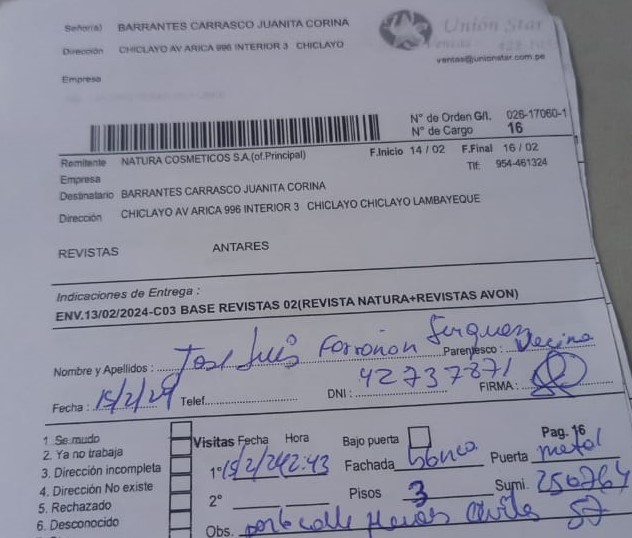 Señor(s) BARRANTES CARRASCO JUANITA CORINA
Dirección CHICLAYO AV ARICA 996 INTERIOR 3 CHICLAYO
Empresa
Union Star
Ventas
ventas@unionstar.com.pe
N° de Orden G/I. 026-17060-1
N° de Cargo 16
Remitente NATURA COSMETICOS S.A.(of.Principal) F.Inicio 14 / 02 F.Final 16 / 02
Empresa Tlf: 954-461324
Destinatario BARRANTES CARRASCO JUANITA CORINA
Dirección CHICLAYO AV ARICA 996 INTERIOR 3 CHICLAYO CHICLAYO LAMBAYEQUE
REVISTAS ANTARES
Indicaciones de Entrega :
ENV.13/02/2024-C03 BASE REVISTAS 02(REVISTA NATURA+REVISTAS AVON)
Nombre y Apellidos : Jose Luis Farroñan Parentesco : Vecino
Fecha : 15/2/24 Telef. DNI : 42737871 FIRMA :
1. Se mudo
2. Ya no trabaja
3. Dirección incompleta
4. Dirección No existe
5. Rechazado
6. Desconocido
Visitas Fecha Hora Bajo puerta Pag. 16
1° 15/2/24 2:43 Fachada blanca Puerta metal
2° Pisos 3 Sumi. 250764
Obs. calle